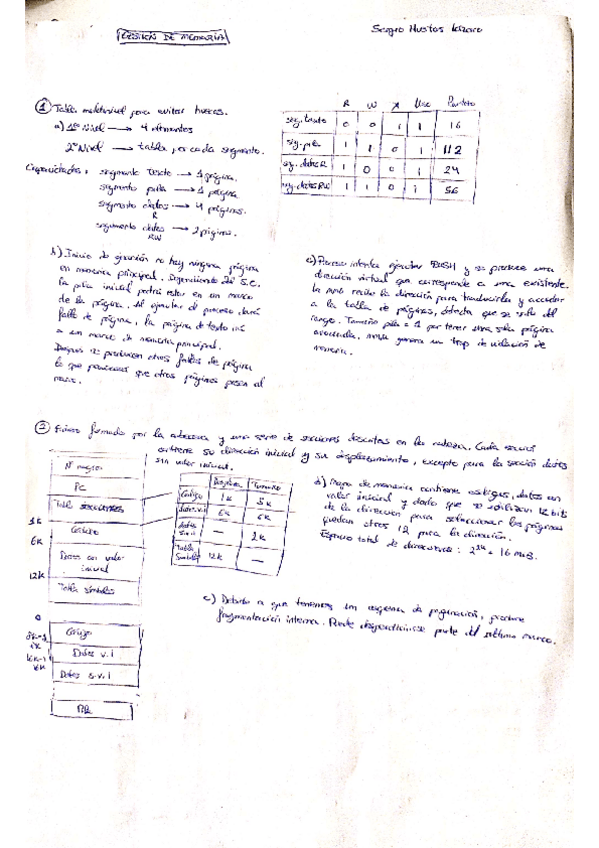 GESTIÓN DE MEMORIA
Sergio Mustos Lázaro
① Tabla multinivel para evitar huecos.
a) 1er Nivel → 4 elementos
2º Nivel → tabla por cada segmento.
Capacidades: segmento texto → 1 página.
segmento pila → 1 página
segmento datos R → 4 páginas.
segmento datos RW → 2 páginas.
R W X Use Puntero
seg. texto 0 0 1 1 16
seg. pila 1 1 0 1 112
sg. datos R 1 0 0 1 24
sg. datos RW 1 1 0 1 56
b) Inicio de ejecución no hay ninguna página
en memoria principal. Dependiendo del S.O.
la pila inicial podrá estar en un marco
de la página. Al ejecutar el proceso dará
fallo de página, la página de texto irá
a un marco de memoria principal.
Después se producen otros fallos de página
lo que provocará que otras páginas pasen al
marco.
c) Proceso intenta ejecutar PUSH y se produce una
dirección virtual que corresponde a una existente.
la MMU recibe la dirección para traducirla y acceder
a la tabla de páginas, detecta que se sale del
rango. Tamaño pila = 1 por tener una sola página
asociada, MMU genera un trap de violación de
memoria.
② formado por la cabecera y una serie de secciones descritas en la cabeza. Cada sección
contiene su dirección inicial y su desplazamiento, excepto para la sección datos
sin valor inicial.
Nº mágico
PC
Tabla secciones
1K
Código
6K
Datos con valor
inicial
12K
Tabla símbolos
Tamaño
Código 1K 5K
datos v.i 6K 6K
datos s.v.i — 2K
Tabla símbolos 12K —
b) Mapa de memoria contiene códigos, datos con
valor inicial y dado que se utilizan 12 bits
de la dirección para seleccionar las páginas
quedan otros 12 para la dirección.
Espacio total de direcciones: 2²⁴ = 16 MB.
c) Debido a que tenemos un esquema de paginación, produce
fragmentación interna. Puede desperdiciarse parte del último marco.
0
Código
Datos v.i
Datos s.v.i